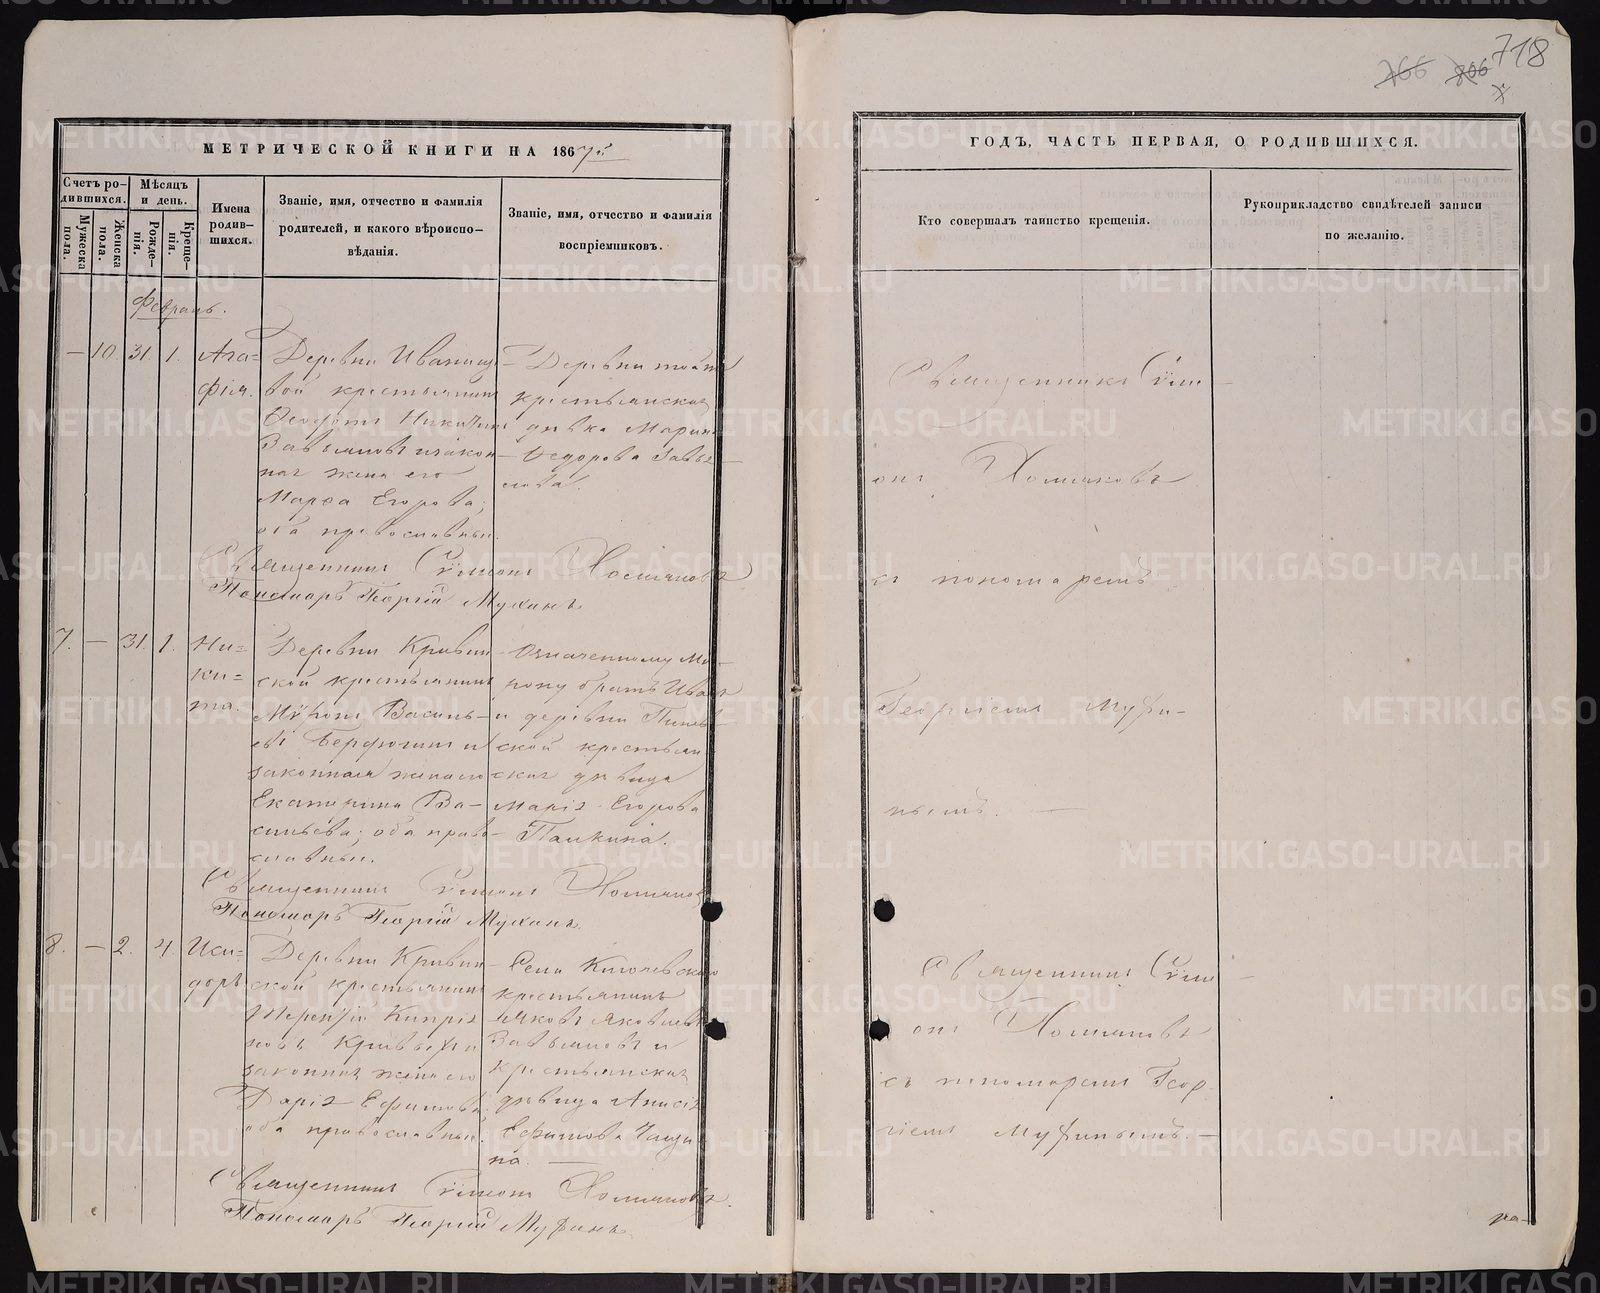 766 806 718
МЕТРИЧЕСКОЙ КНИГИ НА 1867й
ГОДЪ, ЧАСТЬ ПЕРВАЯ, О РОДИВШИХСЯ.
Счетъ родившихся.
Мужеска пола.
Женска пола.
Мѣсяцъ и день.
Рожденія.
Крещенія.
Имена родившихся.
Званіе, имя, отчество и фамилія
родителей, и какого вѣроиспо-
вѣданія.
Званіе, имя, отчество и фамилія
воспріемниковъ.
Кто совершалъ таинство крещенія.
Рукоприкладство свидѣтелей записи
по желанію.
Февраль.
— 10. 31. 1.
Ага=
фія.
Деревни Иванищ
вой крестьянинъ
Ѳеодотъ Никитинъ
Завьяловъ и закон
ная жена его
Марѳа Егорова;
оба православные.
Деревни той же
крестьянская
дѣвка Марина
Ѳедорова Завья
лова.
Священникъ Сѵме—
онъ Холмаковъ
съ пономаремъ
Георгіемъ Мухи-
нымъ. —
Священникъ Сѵмеонъ Холмаковъ
Пономарь Георгій Мухинъ
7. — 31. 1.
Ни=
ки=
та.
Деревни Кривин
ской крестьянинъ
Мѵронъ Василь-
евъ и
законная жена его
Екатерина Ва-
сильева; оба право-
славные.
Означенному Ми-
рону братъ Иванъ
и деревни
ской крестьян
ская дѣвица
Марія Егорова
Палкина.
Священникъ Сѵмеонъ Холмаковъ
Пономарь Георгій Мухинъ.
8. — 2. 4.
Иси=
доръ
Деревни Кривин
ской крестьянинъ
Терентій Кипріа
новъ и
законная жена его
Дарія Ефимова
оба православные.
Села Ключевскаго
крестьянинъ
Яковъ Яковлевъ
Завьяловъ и
крестьянская
дѣвица Анисія
Ефимова
на. —
Священникъ Сѵме—
онъ Холмаковъ
съ пономаремъ Геор-
гіемъ Мухинымъ. —
Священникъ Сѵмеонъ Холмаковъ.
Пономарь Георгій Мухинъ
METRIKI.GASO-URAL.RU